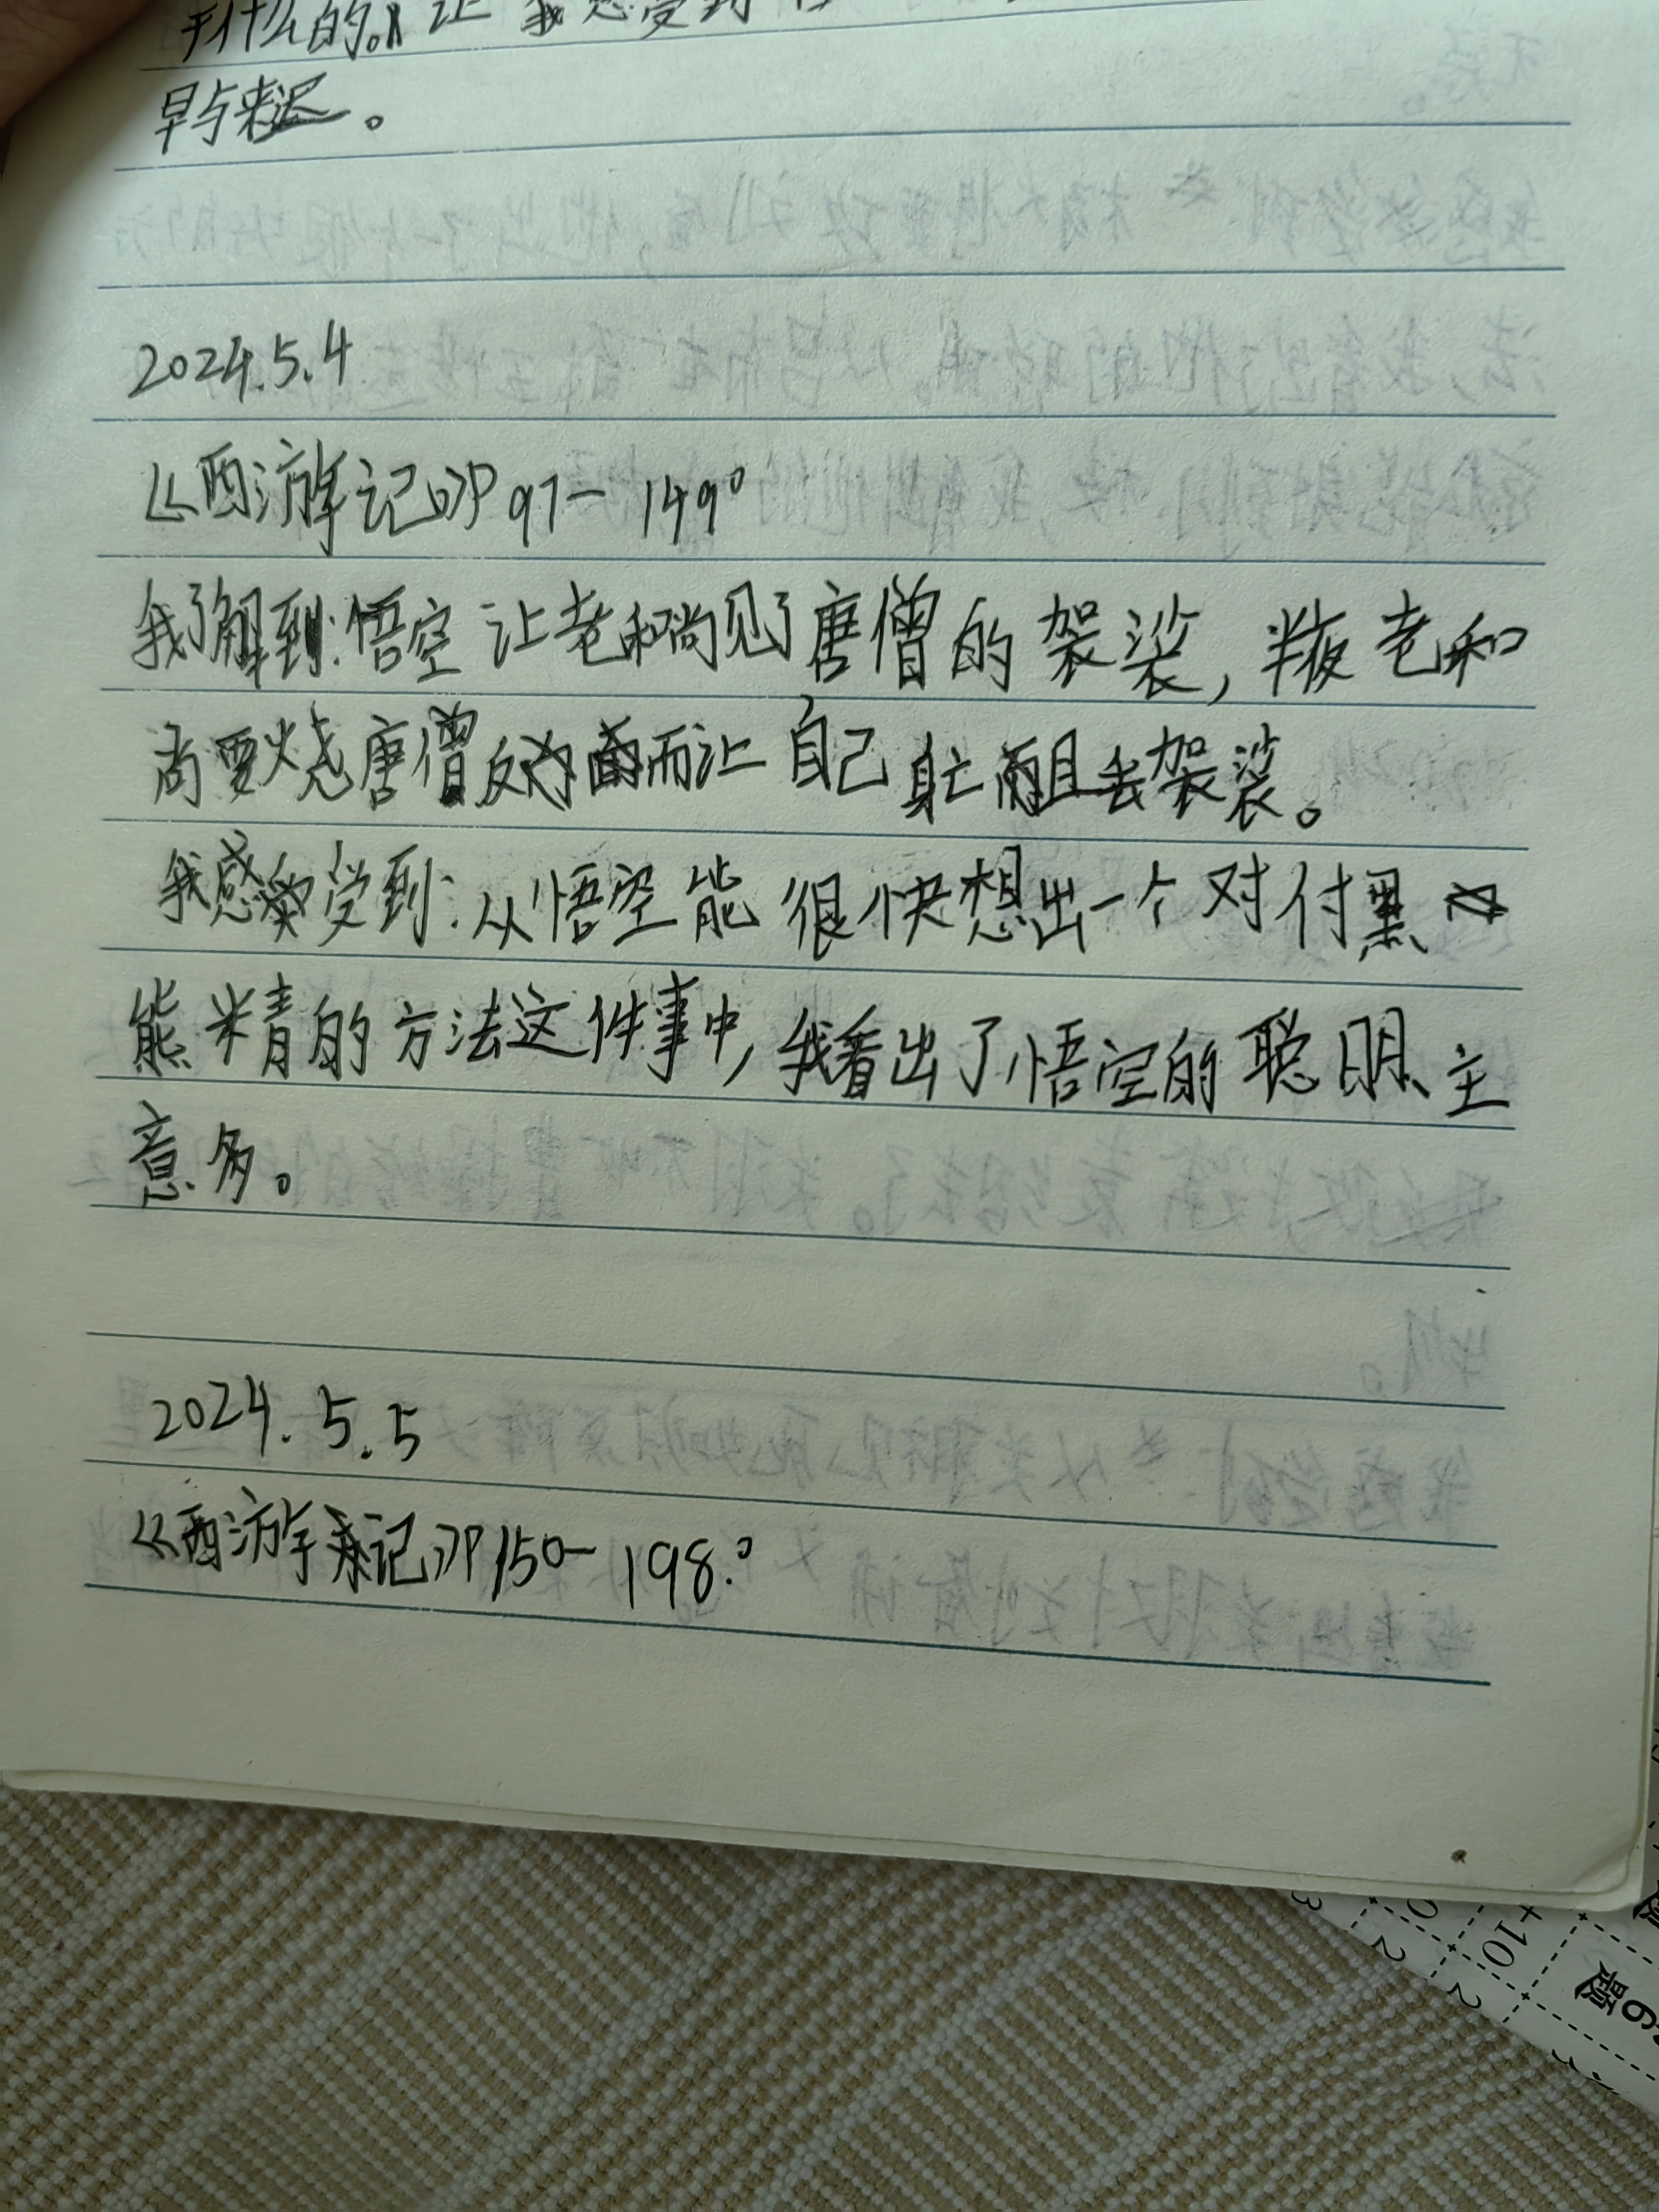 什么的。让我感受到
早与来迟。
2024.5.4
《西游记》P97-149。
我了解到:悟空让老和尚见了唐僧的袈裟,半夜老和
尚要烧唐僧反而让自己身亡而且丢袈裟。
我感受到:从悟空能很快想出一个对付黑
熊精的方法这件事中,我看出了悟空的聪明、主
意多。
2024.5.5
《西游记》P150-198.。
6
题
+10
2
2
3